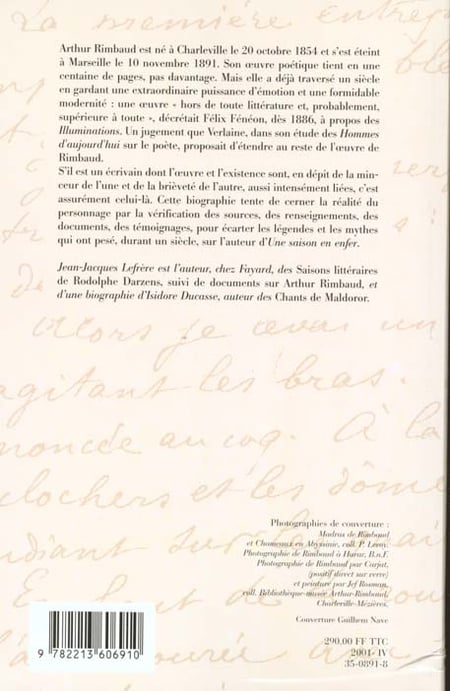 La première entrep
Arthur Rimbaud est né à Charleville le 20 octobre 1854 et s'est éteint
à Marseille le 10 novembre 1891. Son œuvre poétique tient en une
centaine de pages, pas davantage. Mais elle a déjà traversé un siècle
en gardant une extraordinaire puissance d'émotion et une formidable
modernité : une œuvre « hors de toute littérature et, probablement,
supérieure à toute », décrétait Félix Fénéon, dès 1886, à propos des
Illuminations. Un jugement que Verlaine, dans son étude des Hommes
d'aujourd'hui sur le poète, proposait d'étendre au reste de l'œuvre de
Rimbaud.
S'il est un écrivain dont l'œuvre et l'existence sont, en dépit de la min-
ceur de l'une et de la brièveté de l'autre, aussi intensément liées, c'est
assurément celui-là. Cette biographie tente de cerner la réalité du
personnage par la vérification des sources, des renseignements, des
documents, des témoignages, pour écarter les légendes et les mythes
qui ont pesé, durant un siècle, sur l'auteur d'Une saison en enfer.
Jean-Jacques Lefrère est l'auteur, chez Fayard, des Saisons littéraires
de Rodolphe Darzens, suivi de documents sur Arthur Rimbaud, et
d'une biographie d'Isidore Ducasse, auteur des Chants de Maldoror.
Alors je levai un
agitant les bras.
noncée au coq. À la
clochers et les dôme
Photographies de couverture :
Madras de Rimbaud
et Chameaux en Abyssinie, coll. P. Leroy.
Photographie de Rimbaud à Harar, B.n.F.
Photographie de Rimbaud par Carjat,
(positif direct sur verre)
et peinture par Jef Rosman,
coll. Bibliothèque-musée Arthur-Rimbaud,
Charleville-Mézières.
Couverture Guilhem Nave
290,00 FF TTC
2001-IV
35-0891-8
9 782213 606910